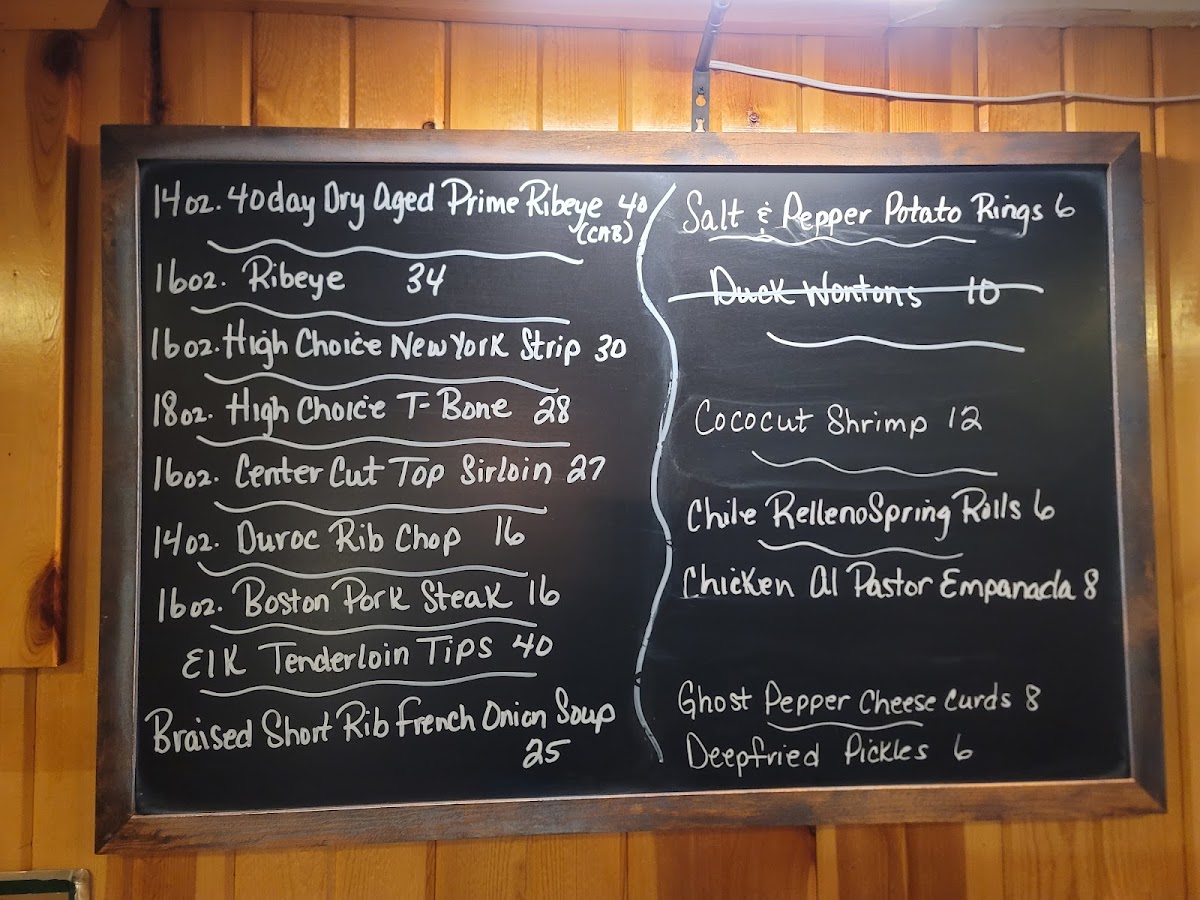 14oz. 40day Dry Aged Prime Ribeye 40
(CAB)
16oz. Ribeye 34
16oz. High Choice New York Strip 30
18oz. High Choice T-Bone 28
16oz. Center Cut Top Sirloin 27
14oz. Duroc Rib Chop 16
16oz. Boston Pork Steak 16
Elk Tenderloin Tips 40
Braised Short Rib French Onion Soup
25
Salt & Pepper Potato Rings 6
Duck Wontons 10
Cococut Shrimp 12
Chile Relleno Spring Rolls 6
Chicken Al Pastor Empanada 8
Ghost Pepper Cheese Curds 8
Deepfried Pickles 6